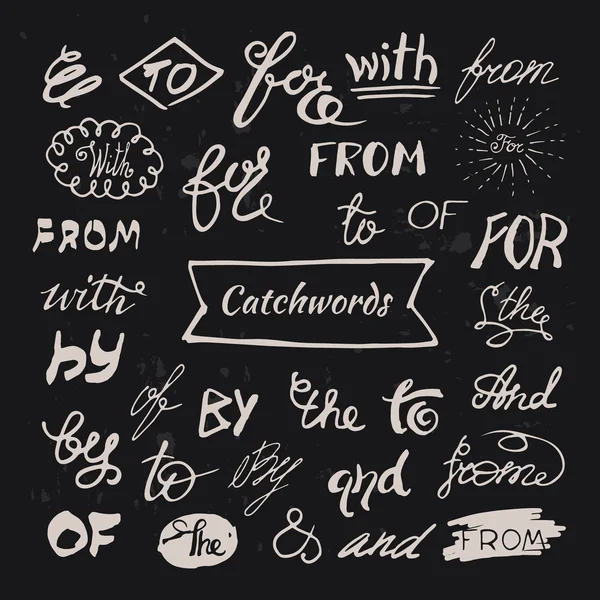 & TO for with from
With for FROM For
FROM to OF FOR
with Catchwords the
by of BY the to And
by to By and from
OF the & and FROM